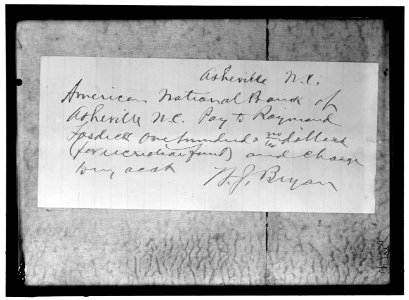 Asheville N.C.
American National Bank of
Asheville N.C. Pay to Raymond
Fosdick One hundred & no/100 dollars
(for recreation fund) and charge
to my acct
W. J. Bryan